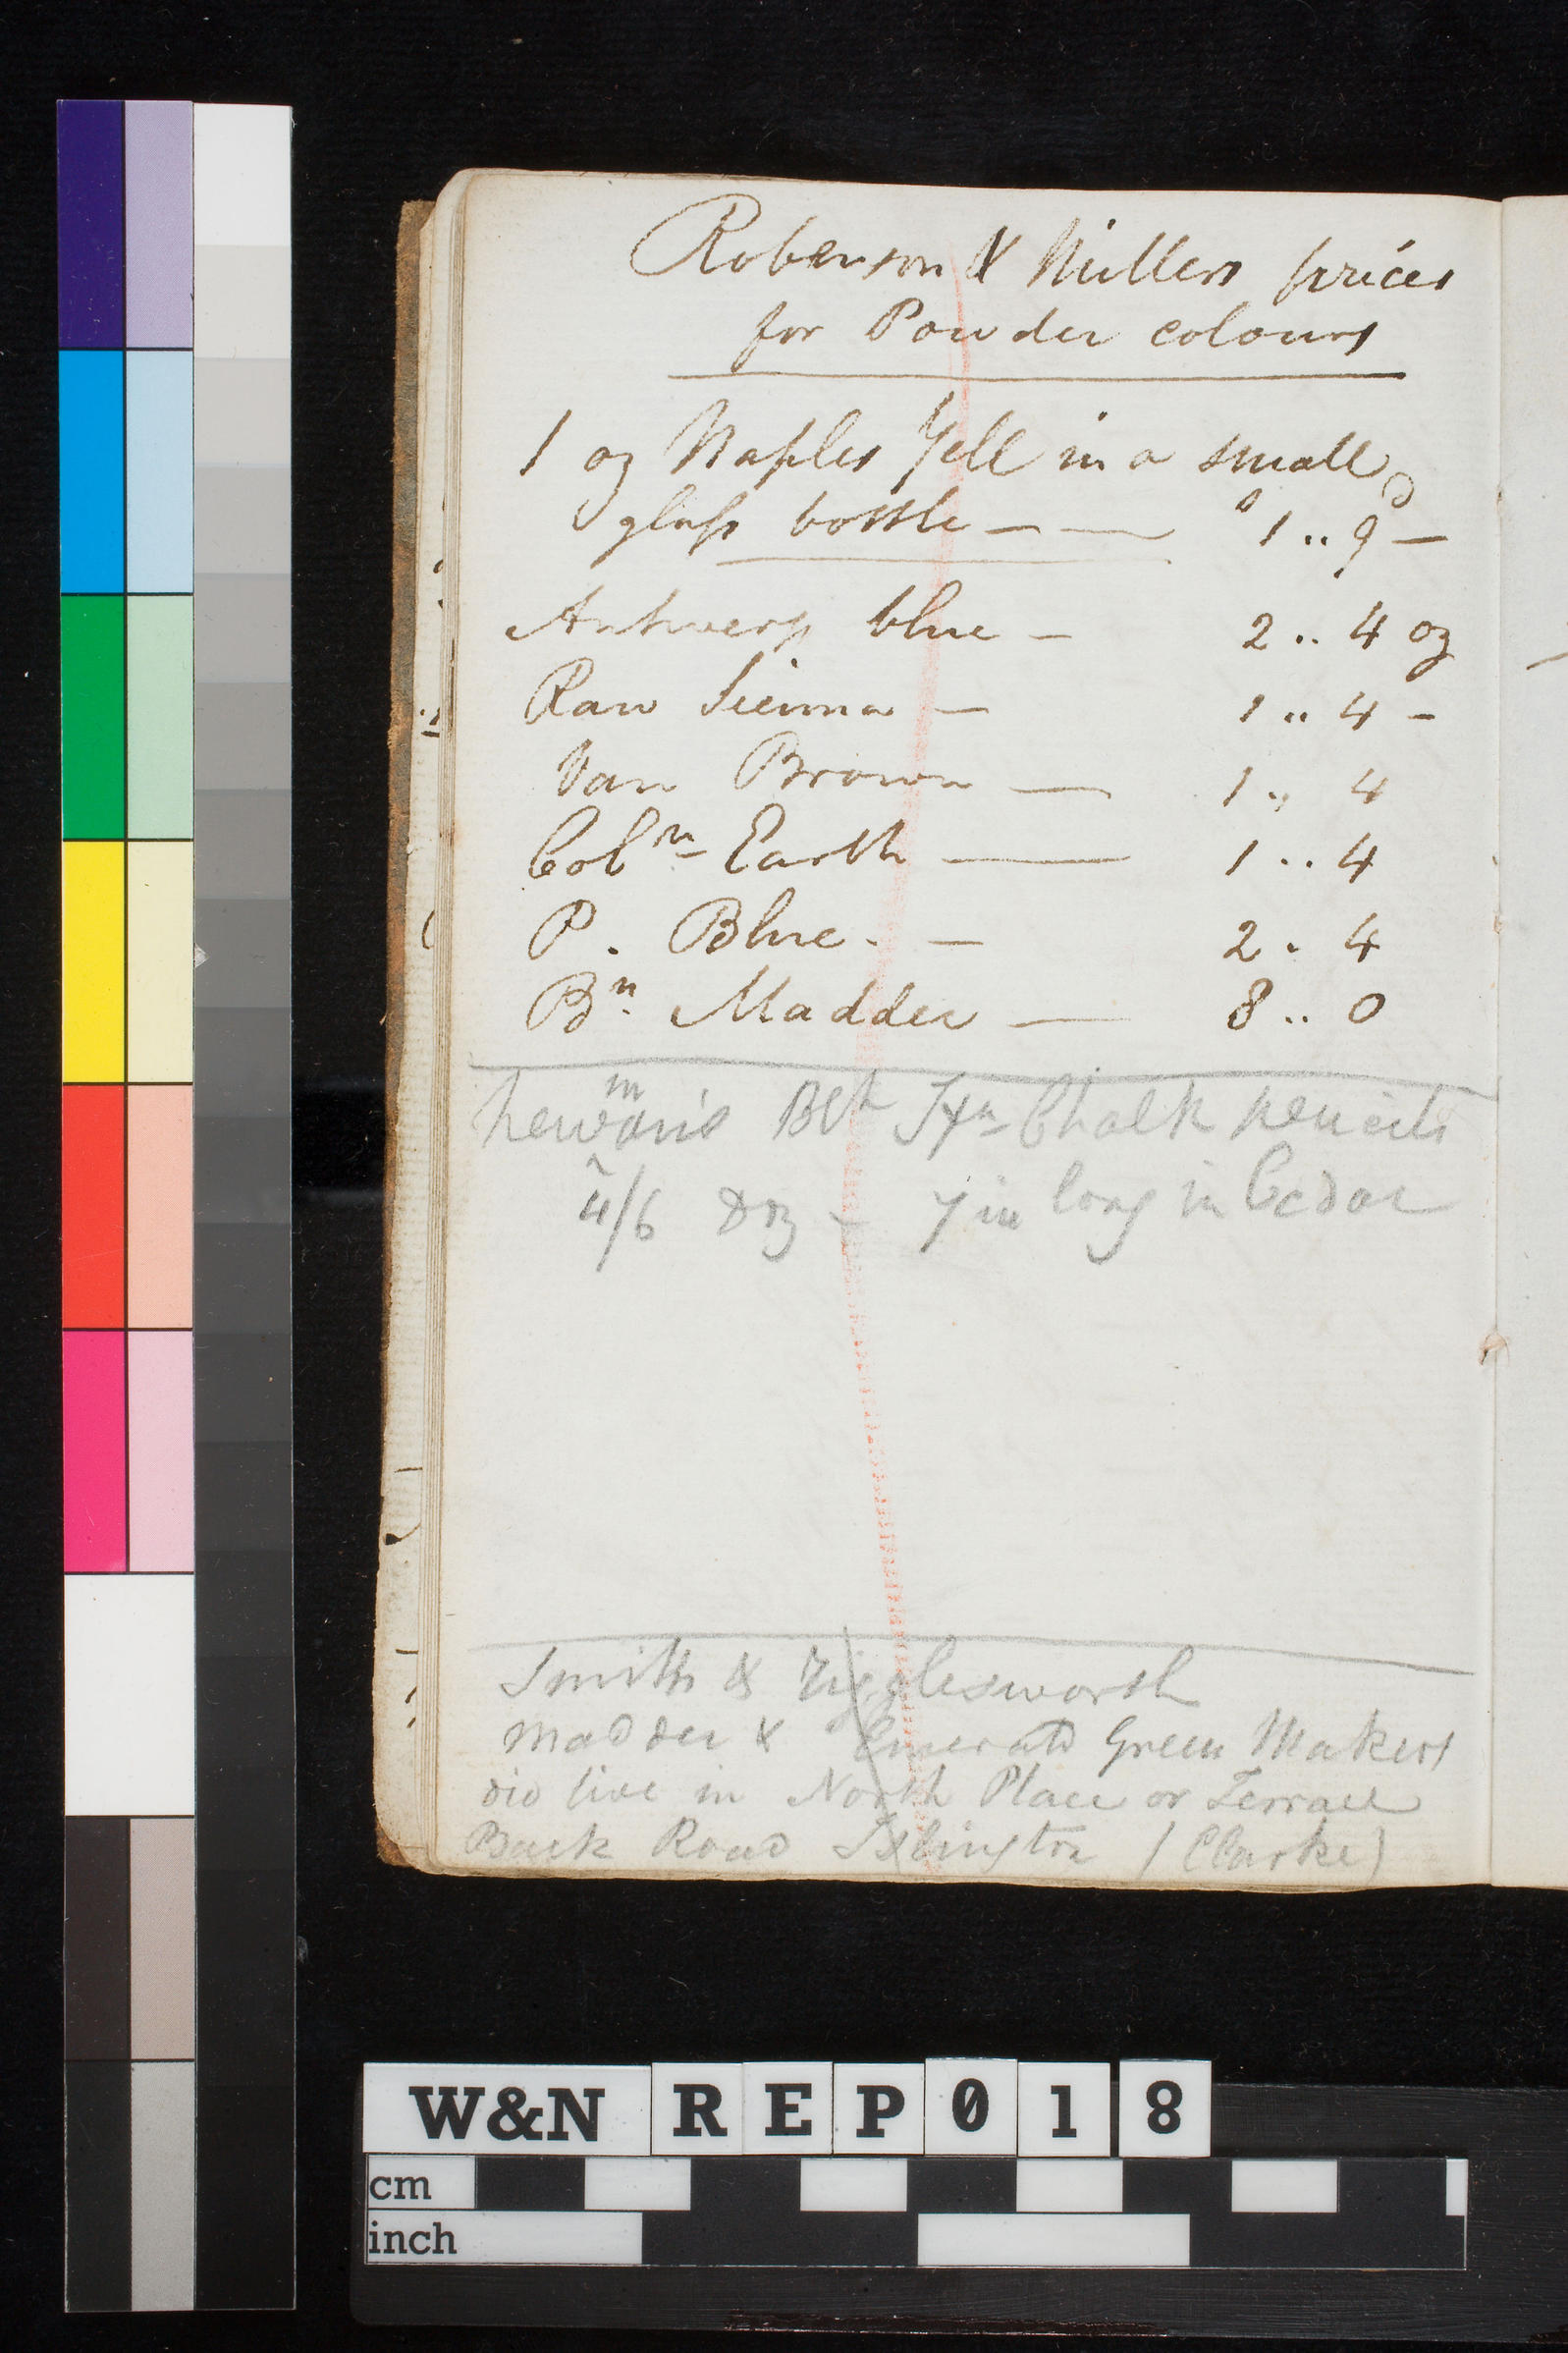 Roberson & Millers prices
for Powder colours
1 oz Naples Yell in a small
glass bottle — — s 1 .. d 9 —
Antwerp blue — 2 .. 4 oz
Raw Sienna — 1 .. 4 -
Van Brown — 1 .. 4
Col n Earth — 1 .. 4
P . Blue . — 2 . 4
B n . Madder — 8 .. 0
Newman's Blk Chalk pencils
4/6 Doz – 7 in long in Cedar
Smith & Wigglesworth
Madder & Emerald Green Makers
did live in North Place or Terrace
Back Road Islington (Clarke)
W&N REP018
cm
inch